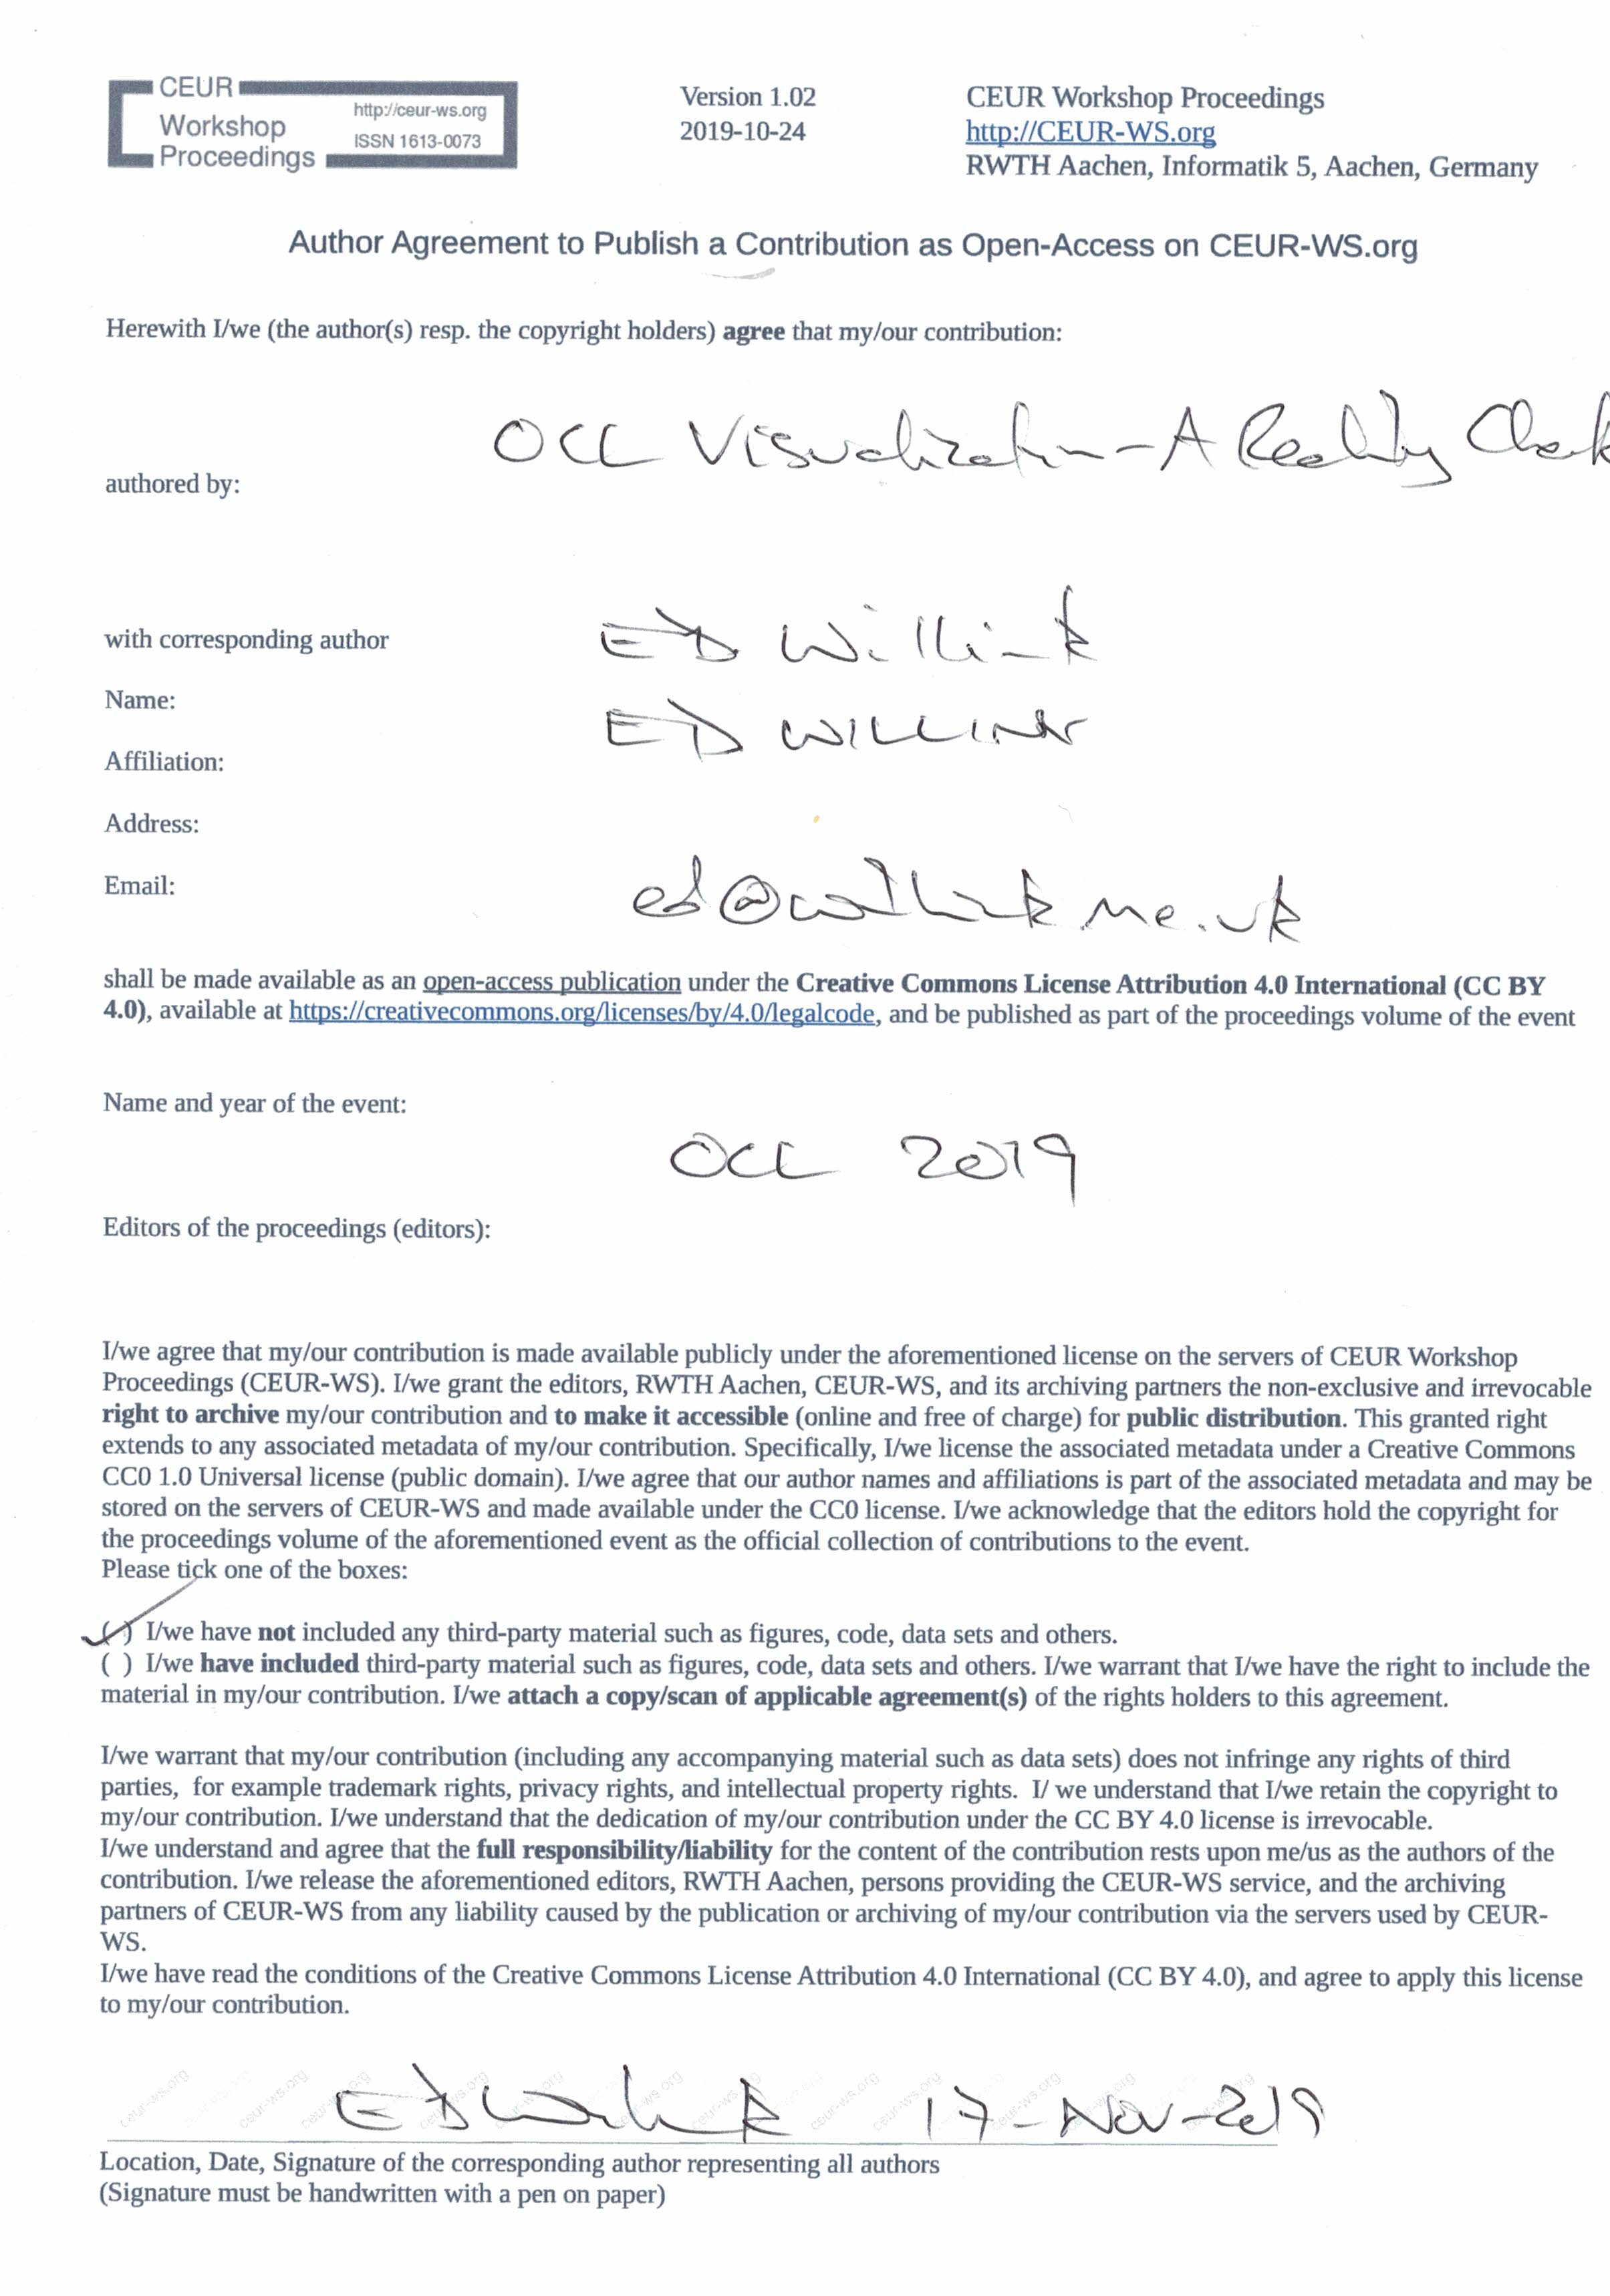 CEUR
Workshop
Proceedings
http://ceur-ws.org
ISSN 1613-0073
Version 1.02
2019-10-24
CEUR Workshop Proceedings
http://CEUR-WS.org
RWTH Aachen, Informatik 5, Aachen, Germany
Author Agreement to Publish a Contribution as Open-Access on CEUR-WS.org
Herewith I/we (the author(s) resp. the copyright holders) agree that my/our contribution:
OCL Visualization - A Reality Check
authored by:
ED Willink
with corresponding author
Name:
ED WILLINK
Affiliation:
Address:
Email:
ed@willink.me.uk
shall be made available as an open-access publication under the Creative Commons License Attribution 4.0 International (CC BY
4.0), available at https://creativecommons.org/licenses/by/4.0/legalcode, and be published as part of the proceedings volume of the event
Name and year of the event:
OCL 2019
Editors of the proceedings (editors):
I/we agree that my/our contribution is made available publicly under the aforementioned license on the servers of CEUR Workshop
Proceedings (CEUR-WS). I/we grant the editors, RWTH Aachen, CEUR-WS, and its archiving partners the non-exclusive and irrevocable
right to archive my/our contribution and to make it accessible (online and free of charge) for public distribution. This granted right
extends to any associated metadata of my/our contribution. Specifically, I/we license the associated metadata under a Creative Commons
CC0 1.0 Universal license (public domain). I/we agree that our author names and affiliations is part of the associated metadata and may be
stored on the servers of CEUR-WS and made available under the CC0 license. I/we acknowledge that the editors hold the copyright for
the proceedings volume of the aforementioned event as the official collection of contributions to the event.
Please tick one of the boxes:
( ) I/we have not included any third-party material such as figures, code, data sets and others.
( ) I/we have included third-party material such as figures, code, data sets and others. I/we warrant that I/we have the right to include the
material in my/our contribution. I/we attach a copy/scan of applicable agreement(s) of the rights holders to this agreement.
I/we warrant that my/our contribution (including any accompanying material such as data sets) does not infringe any rights of third
parties, for example trademark rights, privacy rights, and intellectual property rights. I/ we understand that I/we retain the copyright to
my/our contribution. I/we understand that the dedication of my/our contribution under the CC BY 4.0 license is irrevocable.
I/we understand and agree that the full responsibility/liability for the content of the contribution rests upon me/us as the authors of the
contribution. I/we release the aforementioned editors, RWTH Aachen, persons providing the CEUR-WS service, and the archiving
partners of CEUR-WS from any liability caused by the publication or archiving of my/our contribution via the servers used by CEUR-
WS.
I/we have read the conditions of the Creative Commons License Attribution 4.0 International (CC BY 4.0), and agree to apply this license
to my/our contribution.
ED Willink 17-Nov-2019
Location, Date, Signature of the corresponding author representing all authors
(Signature must be handwritten with a pen on paper)